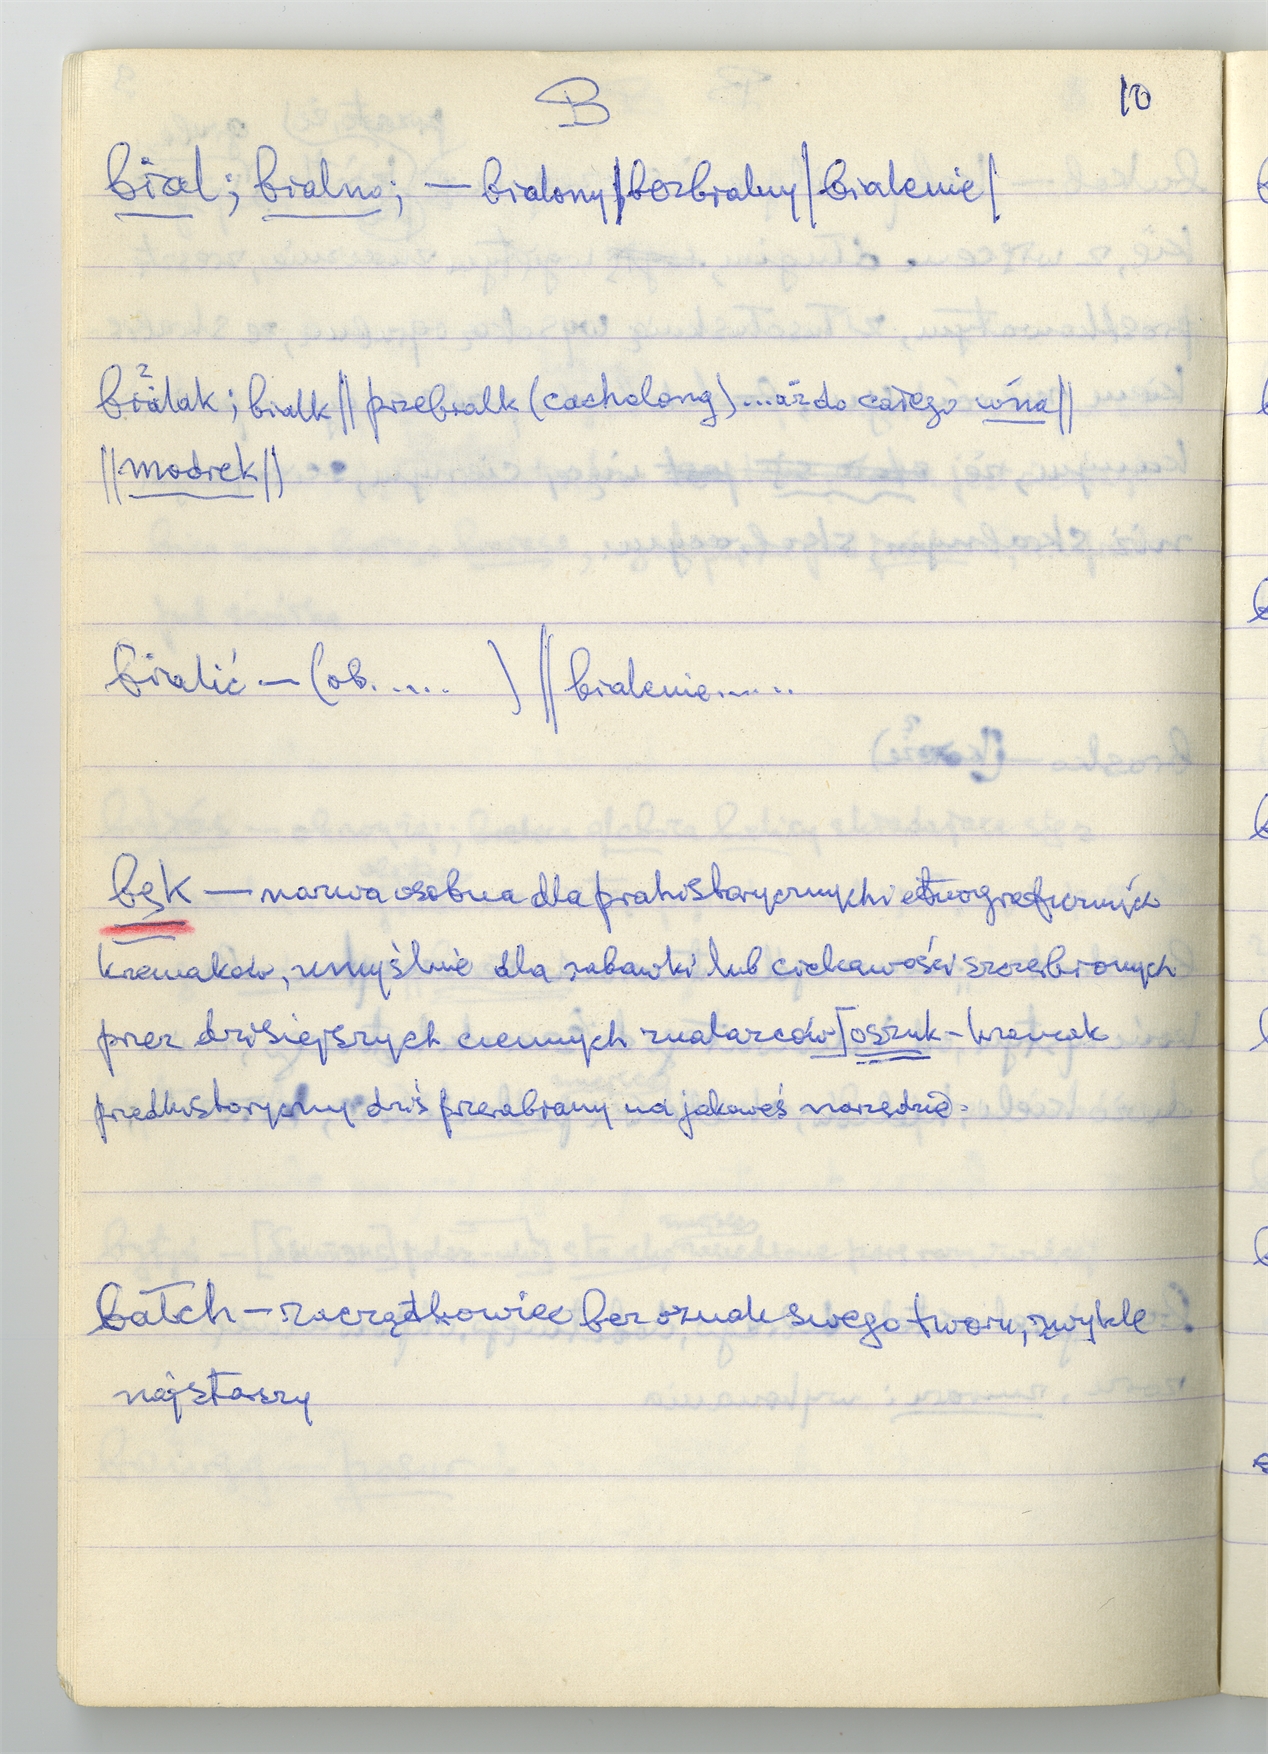 B 10
bial; bialno; — bialony|bezbialny|bialenie|
bialak; bialk || przebialk (cacholong)....aż do całego
||modrek||
bialić — (ob..... ) || bialenie......
bęk — nazwa osobna dla prahistorycznych i etnograficznych
krzemaków, umyślnie dla zabawki lub ciekawości szczerbionych
przez dzisiejszych ciemnych znalazców [oszuk - krzemak
przedhistoryczny dziś przerabiany na jakoweś narzędzie.
bałch — zaczątkowiec bez oznak swego tworu, zwykle
najstarszy